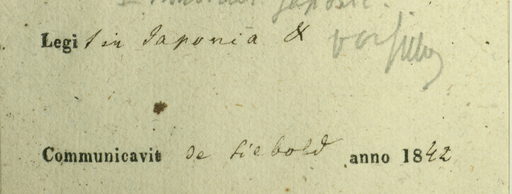 japonic.
Legit in Japonia &
Communicavit de Siebold anno 1842